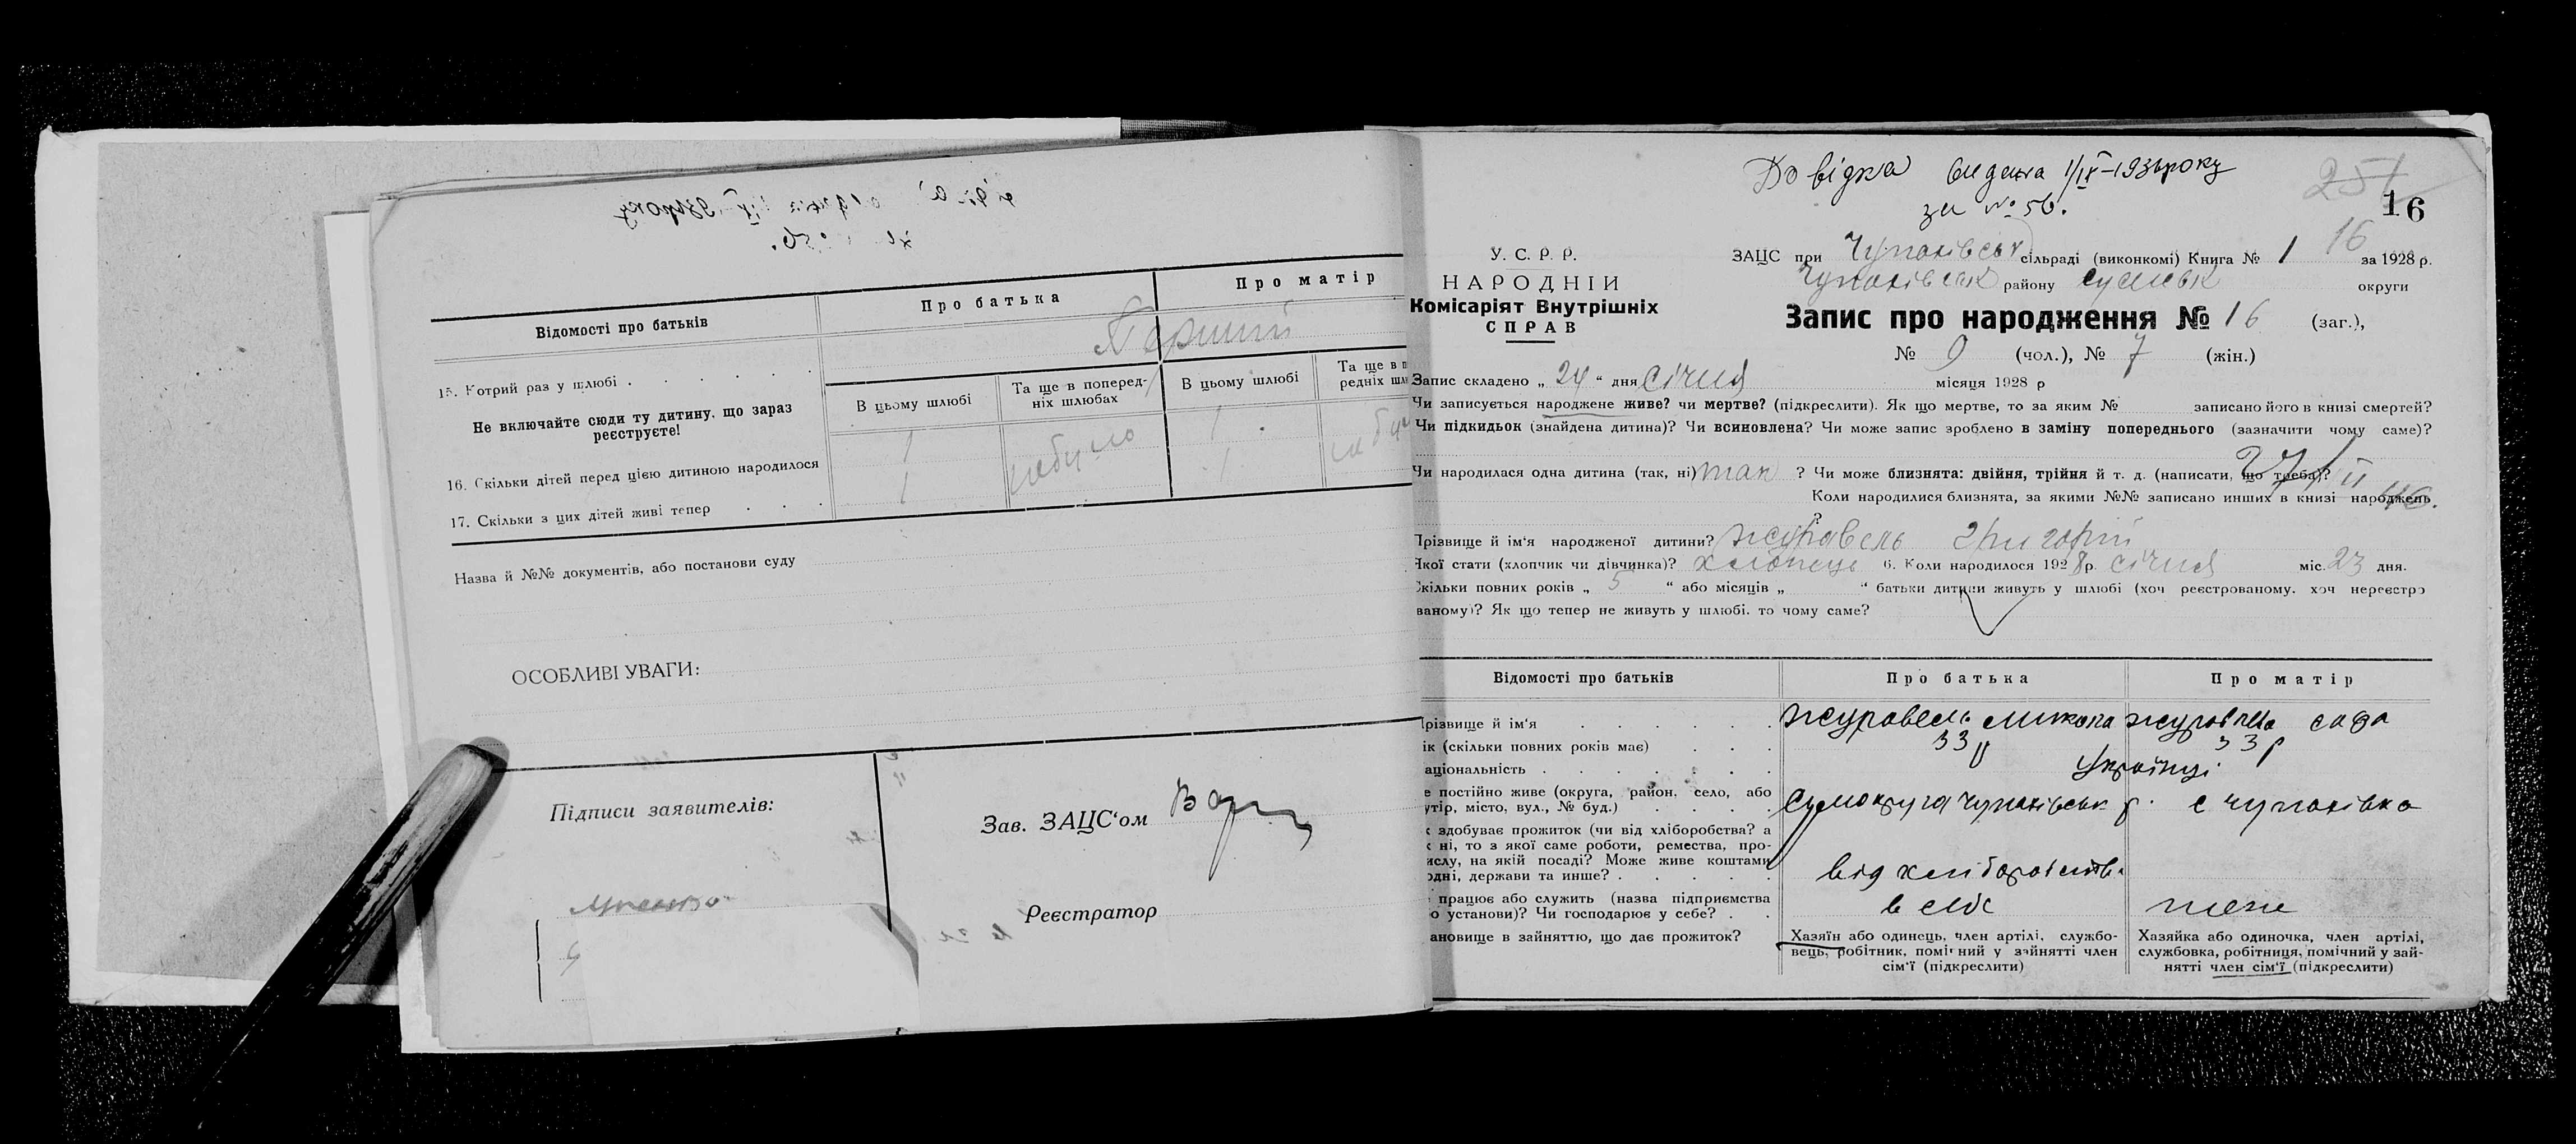 Відомості про батьків
Про батька
Про матір
Перший
15. Котрий раз у шлюбі
Не включайте сюди ту дитину, що зараз
реєструєте!
В цьому шлюбі
Та ще в поперед-
ніх шлюбах
В цьому шлюбі
Та ще в п
редніх шл
16. Скільки дітей перед цією дитиною народилося
1
небуло
1
17. Скільки з цих дітей живі тепер
1
1
Назва й №№ документів, або постанови суду
ОСОБЛИВІ УВАГИ:
Підписи заявителів:
Зав. ЗАЦС'ом
Реєстратор
Довідка видана 1/IX-193 року
за № 56.
251
16
У. С. Р. Р.
НАРОДНІЙ
Комісаріят Внутрішніх
СПРАВ
ЗАЦС при Чупахівськ сільраді (виконкомі) Книга № 1 16 за 1928 р.
Чупахівськ району Сумськ округи
Запис про народження № 16 (заг.),
№ 9 (чол.), № 7 (жін.)
Запис складено „ 24 “ дня січня місяця 1928 р
Чи записується народжене живе? чи мертве? (підкреслити). Як що мертве, то за яким № записано його в книзі смертей?
Чи підкидьок (знайдена дитина)? Чи всиновлена? Чи може запис зроблено в заміну попереднього (зазначити чому саме)?
Чи народилася одна дитина (так, ні) так ? Чи може близнята: двійня, трійня й т. д. (написати, що треба)?
Коли народилися близнята, за якими №№ записано инших в книзі народжень
?
Прізвище й ім'я народженої дитини? Журавель Григорій
Якої стати (хлопчик чи дівчинка)? хлопець 6. Коли народилося 1928 р. січня міс. 23 дня.
Скільки повних років „ 5 “ або місяців „ “ батьки дитини живуть у шлюбі (хоч реєстрованому, хоч нереєстро
ваному)? Як що тепер не живуть у шлюбі, то чому саме?
Відомості про батьків
Про батька
Про матір
Прізвище й ім'я
Журавель Микола
ік (скільки повних років має)
33 р
33 р
аціональність
Українці
е постійно живе (округа, район, село, або
утір, місто, вул., № буд.)
Сумокруга Чупахівськ р. с Чупахівка
к здобуває прожиток (чи від хліборобства? а
к ні, то з якої саме роботи, ремества, про-
ислу, на якій посаді? Може живе коштами
одні, держави та инше?
від хліборобств.
працює або служить (назва підприємства
о установи)? Чи господарює у себе?
в себе
теж
ановище в зайняттю, що дає прожиток?
Хазяїн або одинець, член артілі, службо-
вець, робітник, помічний у зайнятті член
сім'ї (підкреслити)
Хазяйка або одиночка, член артілі,
службовка, робітниця, помічний у зай-
нятті член сім'ї (підкреслити)